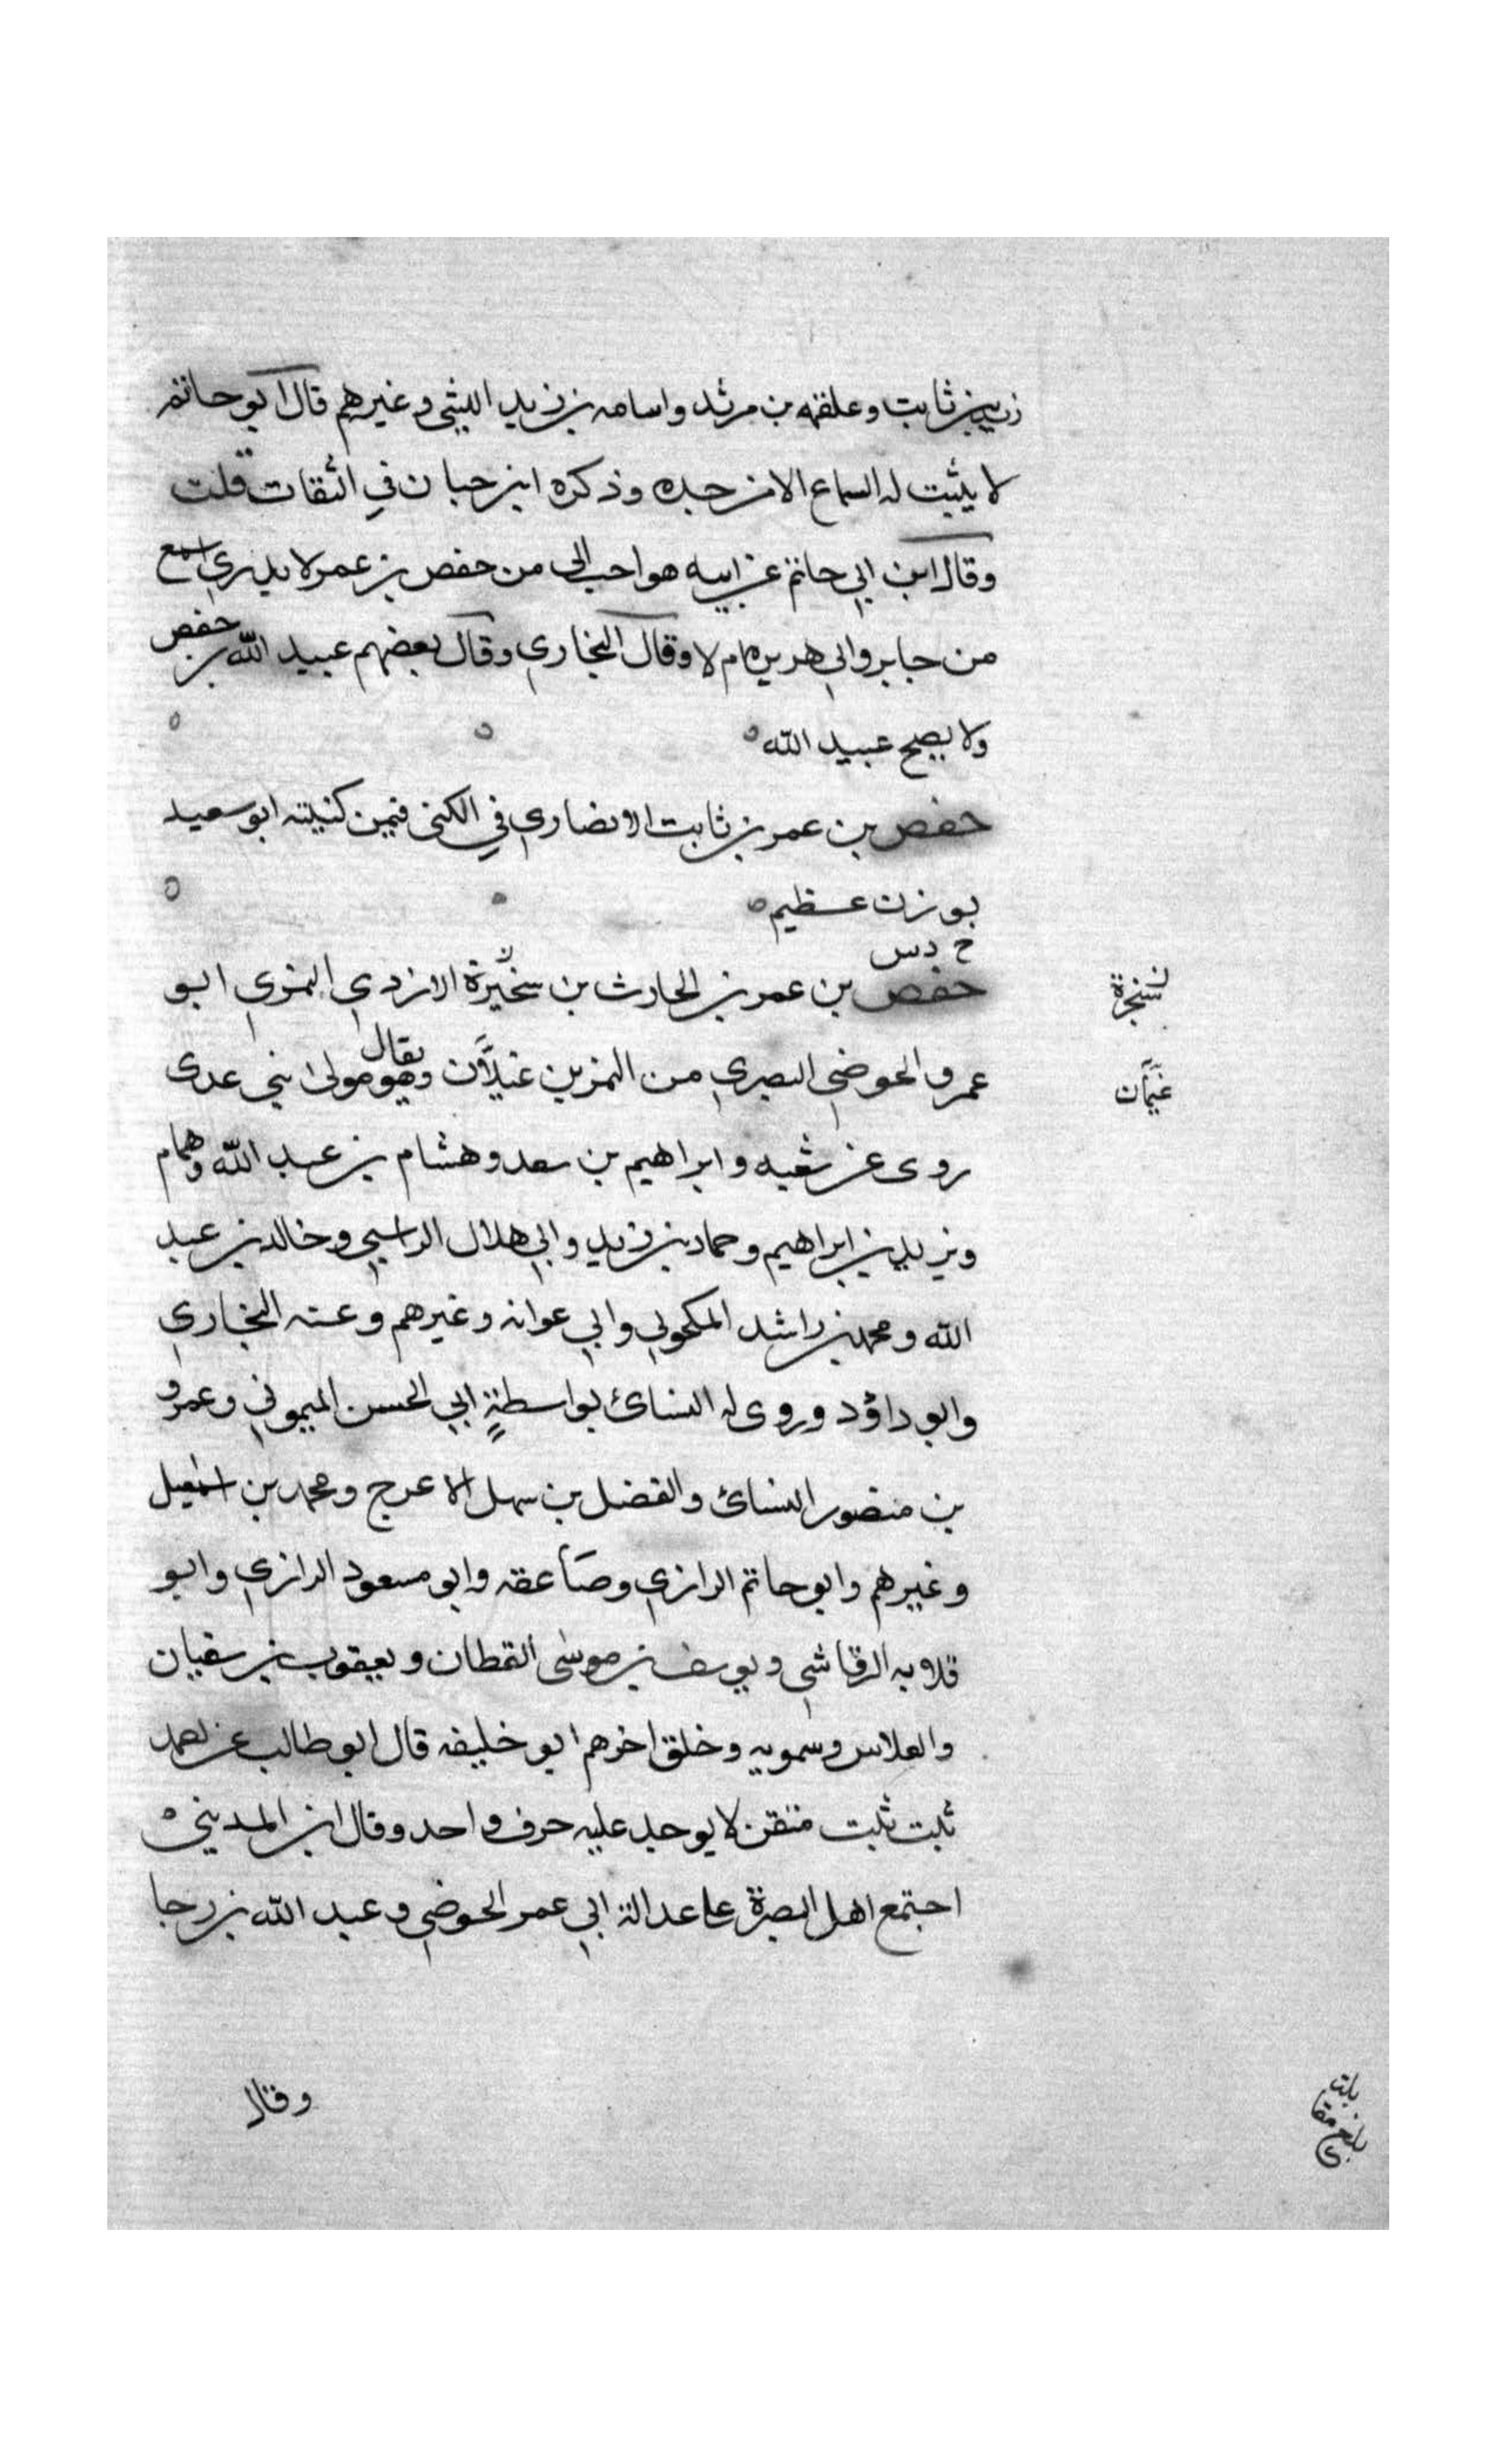 زيد بن ثابت وعلقمه بن مرثد واسامه بن زيد الليثي وغيرهم قال ابو حاتم
لا يثبت له السماع الا من جده وذكره ابن حبان في الثقات قلت
وقال ابن ابي حاتم عن ابيه هو احب الي من حفص بن عمر لا يدري اسمع
من جابر وابي هريره ام لا وقال البخاري وقال بعضهم عبيد الله بن حفص
ولا يصح عبيد الله
حفص بن عمر بن ثابت الانصاري في الكنى فيمن كنيته ابو سعيد
بوزن عظيم
خ د س
حفص بن عمر بن الحارث بن سخبرة الازدي النمري ابو
عمرو الحوضي البصري من النمر بن غيلان يقال وهو مولى بني عدى
روى عن شعبه وابراهيم بن سعد وهشام بن عبد الله وهمام
ويزيد بن ابراهيم وحماد بن زيد وابي هلال الراسبي وخالد بن عبد
الله ومحمد بن راشد المكحولي وابي عوانه وغيرهم وعنه البخاري
وابو داؤد وروى له النسائ بواسطة ابي الحسن الميموني وعمرو
بن منصور النسائ والفضل بن سهل الاعرج ومحمد بن اسمعيل
وغيرهم وابو حاتم الرازي وصاعقه وابو مسعود الرازي وابو
قلابه الرقاشي ويوسف بن موسى القطان ويعقوب بن سفيان
والفلاس وسمويه وخلق اخرهم ابو خليفه قال ابو طالب عن احمد
ثبت ثبت متقن لا يوخذ عليه حرف واحد وقال ابن المديني
اجتمع اهل البصرة على عدالة ابي عمر الحوضي وعبد الله بن رجا
وقال
سخبرة